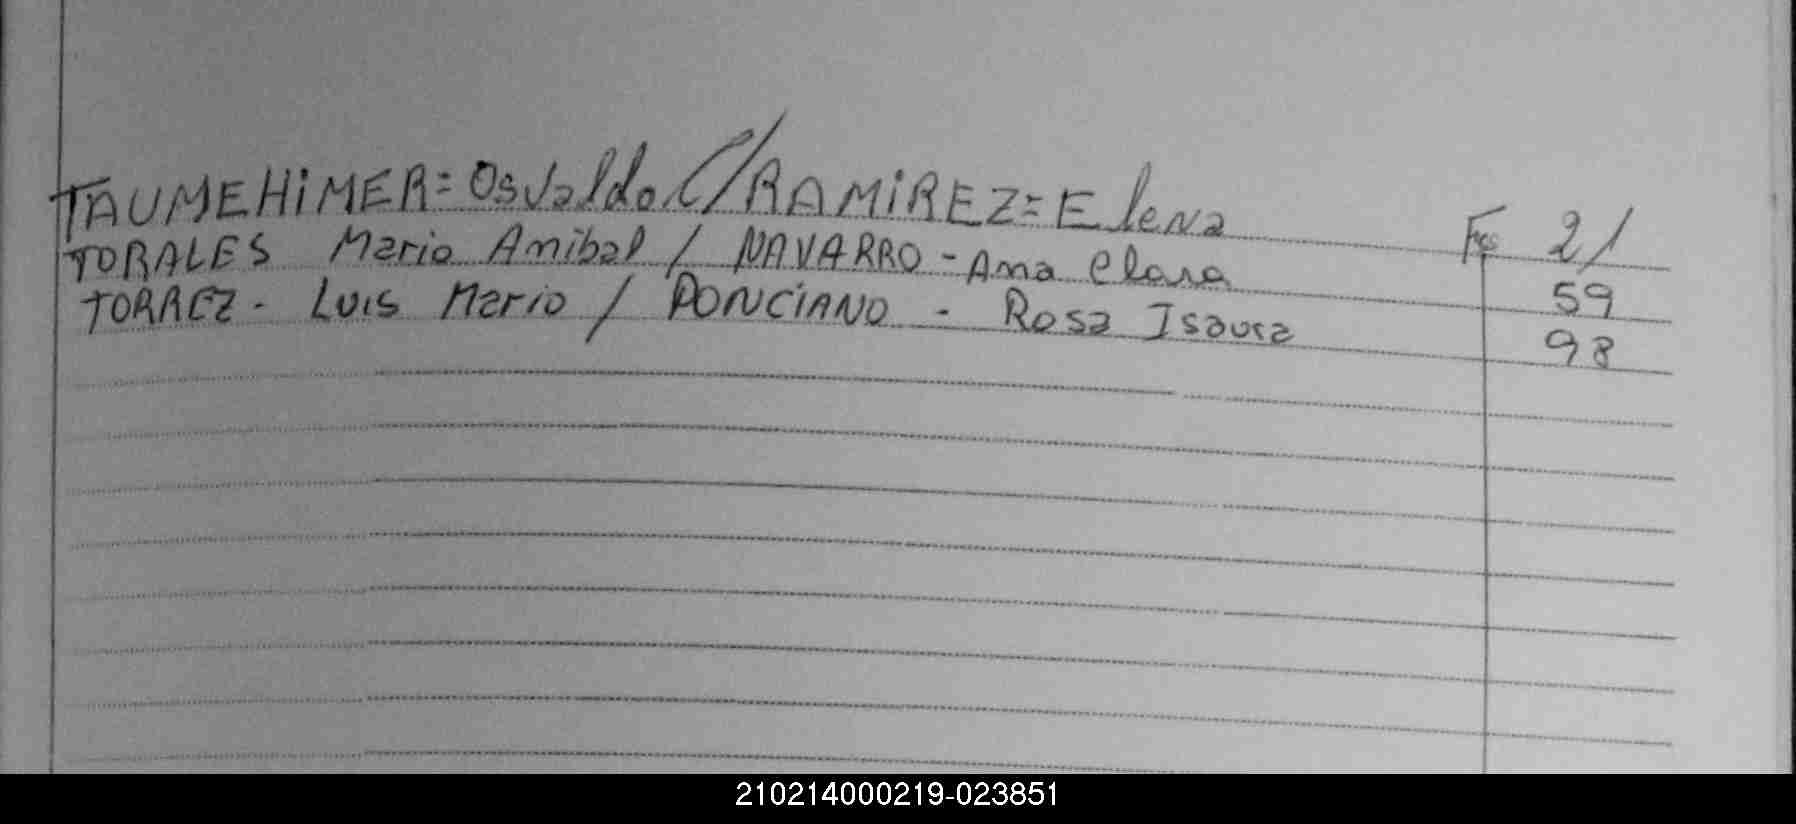 TAUMEHiMER = Osvaldo C/RAMiREZ = Elena Fs 21
TORALES Mario Anibal / NAVARRO - Ana Clara 59
TORREZ - Luis Mario / PONCiANO - Rosa Isaura 98
210214000219-023851